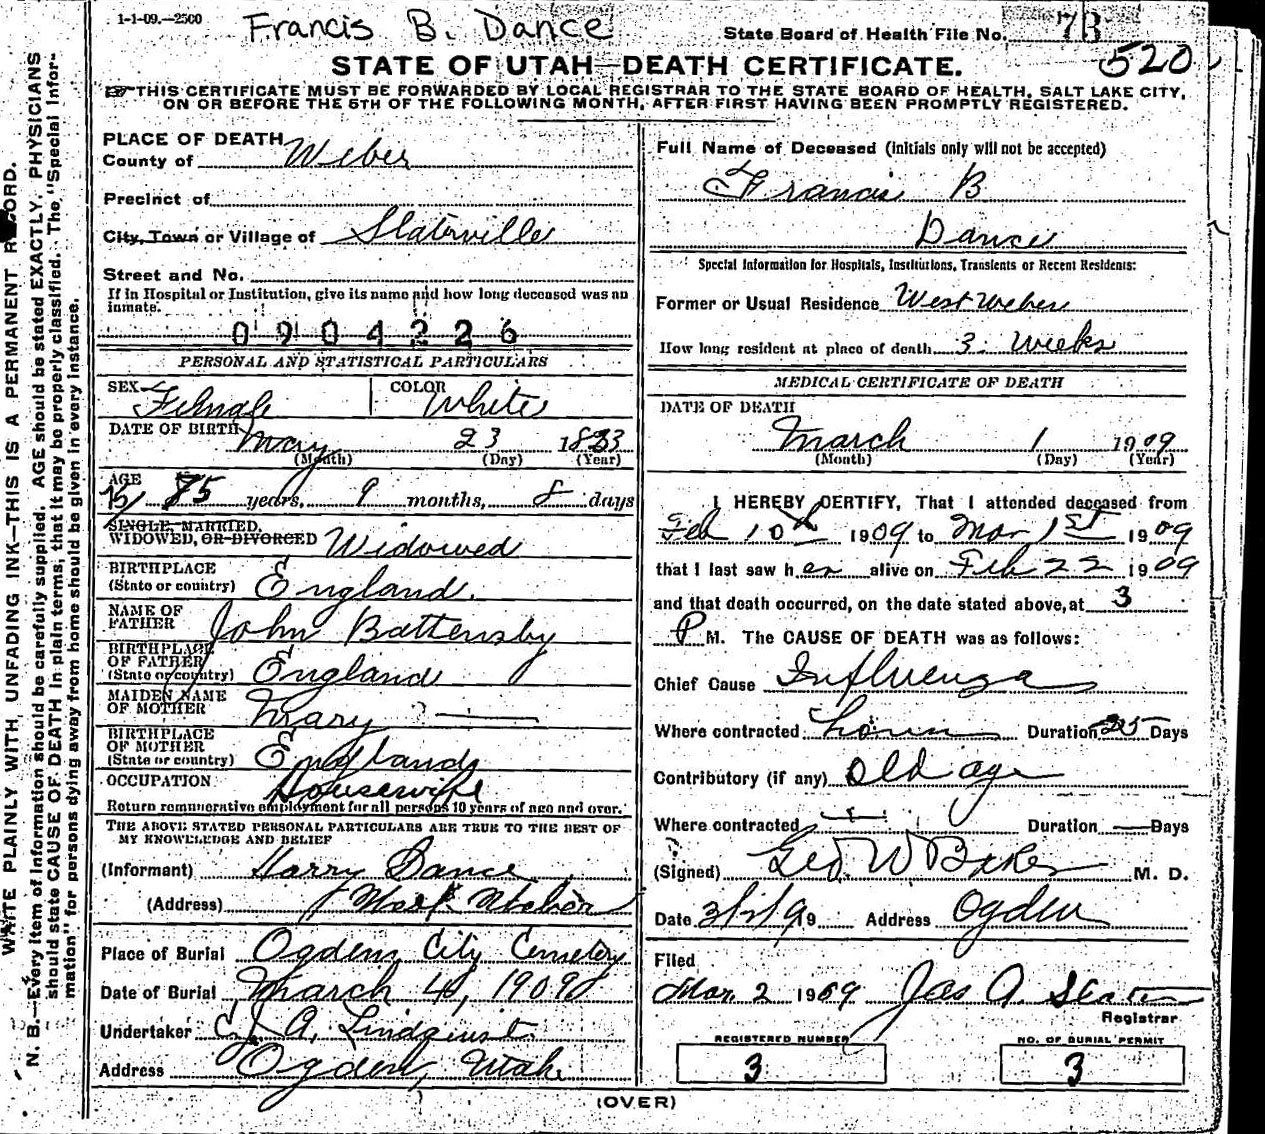 1-1-09.—2500
Francis B. Dance
State Board of Health File No. 7B
520
STATE OF UTAH—DEATH CERTIFICATE.
THIS CERTIFICATE MUST BE FORWARDED BY LOCAL REGISTRAR TO THE STATE BOARD OF HEALTH, SALT LAKE CITY,
ON OR BEFORE THE 5TH OF THE FOLLOWING MONTH, AFTER FIRST HAVING BEEN PROMPTLY REGISTERED.
WRITE PLAINLY WITH UNFADING INK—THIS IS A PERMANENT RECORD.
N. B.—Every item of information should be carefully supplied. AGE should be stated EXACTLY. PHYSICIANS
should state CAUSE OF DEATH in plain terms, that it may be properly classified. The "Special Infor-
mation" for persons dying away from home should be given in every instance.
PLACE OF DEATH
County of Weber
Precinct of
City, Town or Village of Slaterville
Street and No.
If in Hospital or Institution, give its name and how long deceased was an
inmate.
0904226
PERSONAL AND STATISTICAL PARTICULARS
SEX Female COLOR White
DATE OF BIRTH May 23 1833
(Month) (Day) (Year)
AGE
75 years, 9 months, 8 days
SINGLE, MARRIED,
WIDOWED, OR DIVORCED Widowed
BIRTHPLACE
(State or country) England.
NAME OF
FATHER John Battensby
BIRTHPLACE
OF FATHER
(State or country) England
MAIDEN NAME
OF MOTHER Mary —
BIRTHPLACE
OF MOTHER
(State or country) England
OCCUPATION Housewife
Return remunerative employment for all persons 10 years of age and over.
THE ABOVE STATED PERSONAL PARTICULARS ARE TRUE TO THE BEST OF
MY KNOWLEDGE AND BELIEF
(Informant) Harry Dance
(Address) West Weber
Place of Burial Ogden City Cemetery
Date of Burial March 4, 1909
Undertaker C. J. A. Lindquist
Address Ogden, Utah
Full Name of Deceased (Initials only will not be accepted)
Francis B
Dance
Special Information for Hospitals, Institutions, Transients or Recent Residents:
Former or Usual Residence West Weber
How long resident at place of death 3 Weeks
MEDICAL CERTIFICATE OF DEATH
DATE OF DEATH
March 1 1909
(Month) (Day) (Year)
I HEREBY CERTIFY, That I attended deceased from
Feb 10th 1909 to Mar 1st 1909
that I last saw her alive on Feb 22 1909
and that death occurred, on the date stated above, at 3
P M. The CAUSE OF DEATH was as follows:
Chief Cause Influenza
Where contracted home Duration 25 Days
Contributory (if any) Old age
Where contracted Duration — Days
(Signed) Geo. W Baker M. D.
Date 3/2/1909 Address Ogden
Filed
Mar. 2 1909 Jas A. Slater
Registrar
REGISTERED NUMBER
3
NO. OF BURIAL PERMIT
3
(OVER)